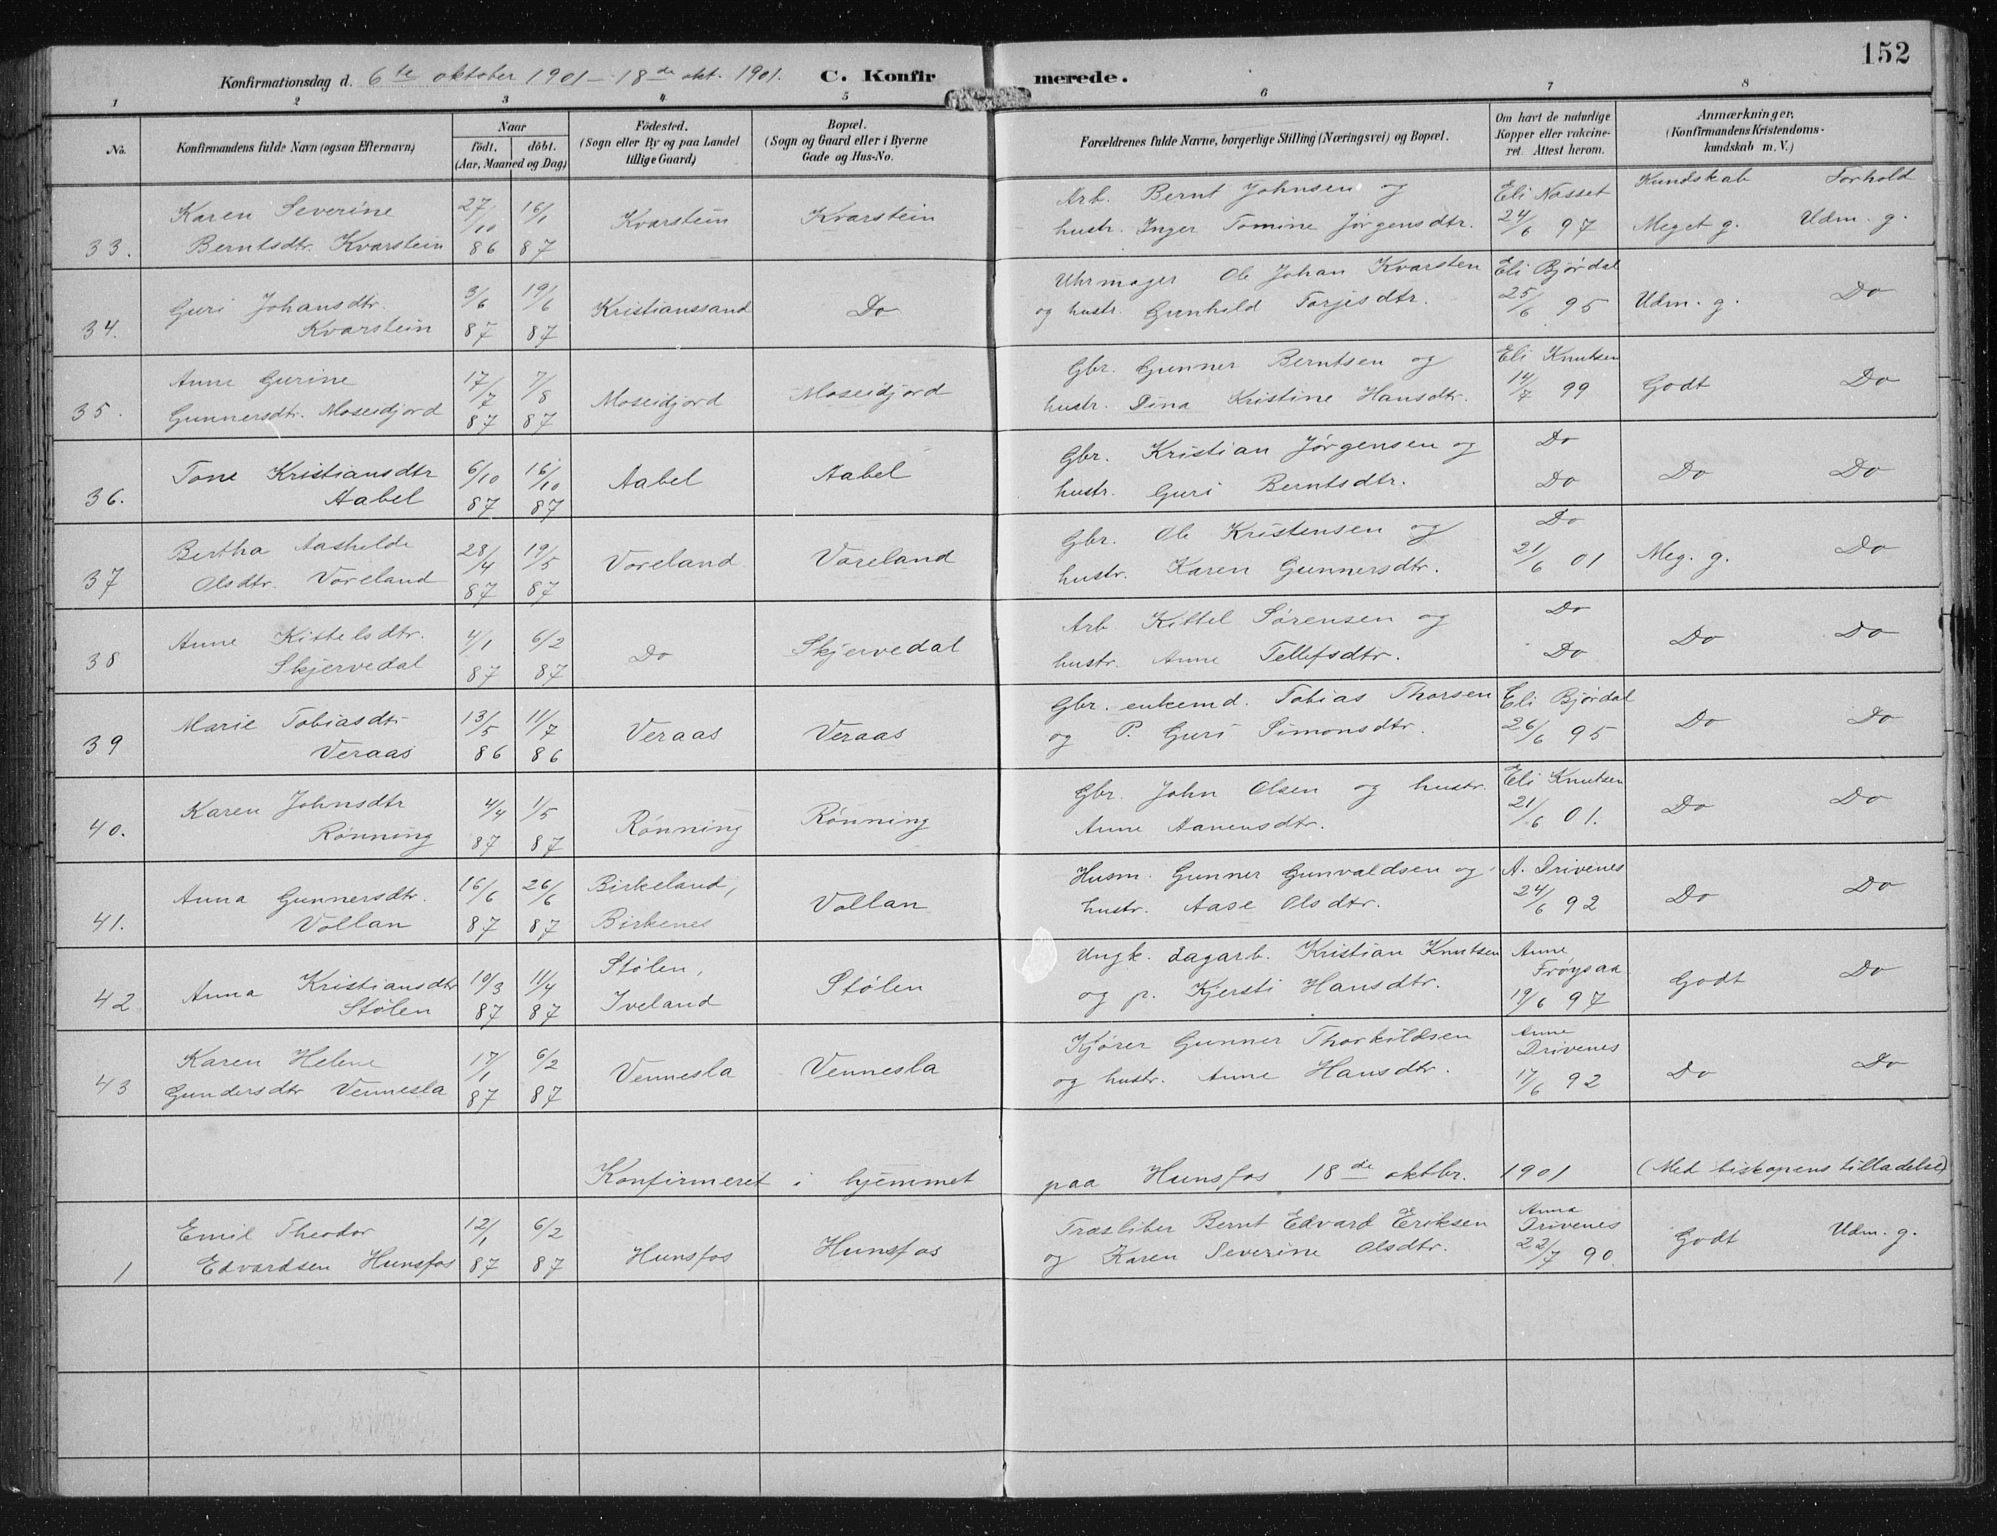 152
Konfirmationsdag d. 6te oktober 1901 – 18de okt. 1901. C. Konfirmerede.
1 2 3 4 5 6 7 8
No. Konfirmandens fulde Navn (ogsaa Efternavn) Naar født. døbt. (Aar, Maaned og Dag) Fødested. (Sogn eller By og paa Landet tillige Gaard) Bopæl. (Sogn og Gaard eller i Byerne Gade og Hus-No. Forældrenes fulde Navne, borgerlige Stilling (Næringsvei) og Bopæl. Om havt de naturlige Kopper eller vakcineret. Attest herom. Anmærkninger. (Konfirmandens Kristendomskundskab m. V.)
Kundskab Forhold
33. Karen Severine Berntsdtr. Kvarstein 27/10 86 16/1 87 Kvarstein Kvarstein Arb. Bernt Johnsen og hustr. Inger Tomine Jørgensdtr. Eli Nasset 24/6 97 Meget g. Udm. g.
34. Guri Johansdtr. Kvarstein 3/6 87 19/6 87 Kristianssand Do Uhrmager Ole Johan Kvarsten og hustr. Gunhild Torjesdtr. Eli Bjørdal 25/6 95 Udm. g. Do
35. Anne Gurine Gunnersdtr. Moseidjord 17/7 87 7/8 87 Moseidjord Moseidjord Gbr. Gunner Berntsen og hustr. Dina Kristine Hansdtr. Eli Knutsen 14/7 99 Godt Do
36. Tone Kristiansdtr Aabel 6/10 87 16/10 87 Aabel Aabel Gbr. Kristian Jørgensen og hustr. Guri Berntsdtr. Do Do Do Do
37 Bertha Aashilde Olsdtr. Voreland 28/4 87 19/5 87 Voreland. Voreland Gbr. Ole Kristensen og hustr. Karen Gunnersdtr. Do 21/6 01 Meg. g. Do
38 Anne Kittelsdtr. Skjervedal 4/1 87 6/2 87 Do Skjervedal Arb Kittel Sørensen og hustr. Anne Tellefsdtr. Do Do Do Do
39 Marie Tobiasdtr Veraas 13/5 86 11/7 86 Veraas Veraas Gbr. enkemd. Tobias Thorsen og P. Guri Simonsdtr. Eli Bjørdal 26/6 95 Do Do
40. Karen Johnsdtr Rønning 4/4 87 1/5 87 Rønning Rønning Gbr. John Olsen og hustr. Anne Aanensdtr. Eli Knutsen 21/6 01. Do Do
41. Anna Gunnersdtr. Vollan 16/6 87 26/6 87 Birkeland, Birkenes Vollan Husm. Gunner Gunvaldsen og hustr. Aase Olsdtr. A. Drivenes 24/6 92 Do Do
42 Anna Kristiansdtr Stølen 19/3 87 11/4 87 Stølen, Iveland Stølen Ungk. dagarb. Kristian Knutsen og p. Kjersti Hansdtr. Anne Frøysaa 19/6 97 Godt Do
43 Karen Helene Gundersdtr Vennesla 17/1 87 6/2 87 Vennesla Vennesla Kjører Gunner Thorkildsen og hustr. Anne Hansdtr. Anne Drivenes 17/6 92 Do Do
Konfirmeret i hjemmet paa Hunsfos 18de oktbr. 1901 (Med biskopens tilladelse)
1 Emil Theodor Edvardsen Hunsfos 12/1 87 6/2 87 Hunsfos Hunsfos Træsliber Bernt Edvard Eriksen og Karen Severine Olsdtr. Anna Drivenes 22/7 90. Godt Udm. g.